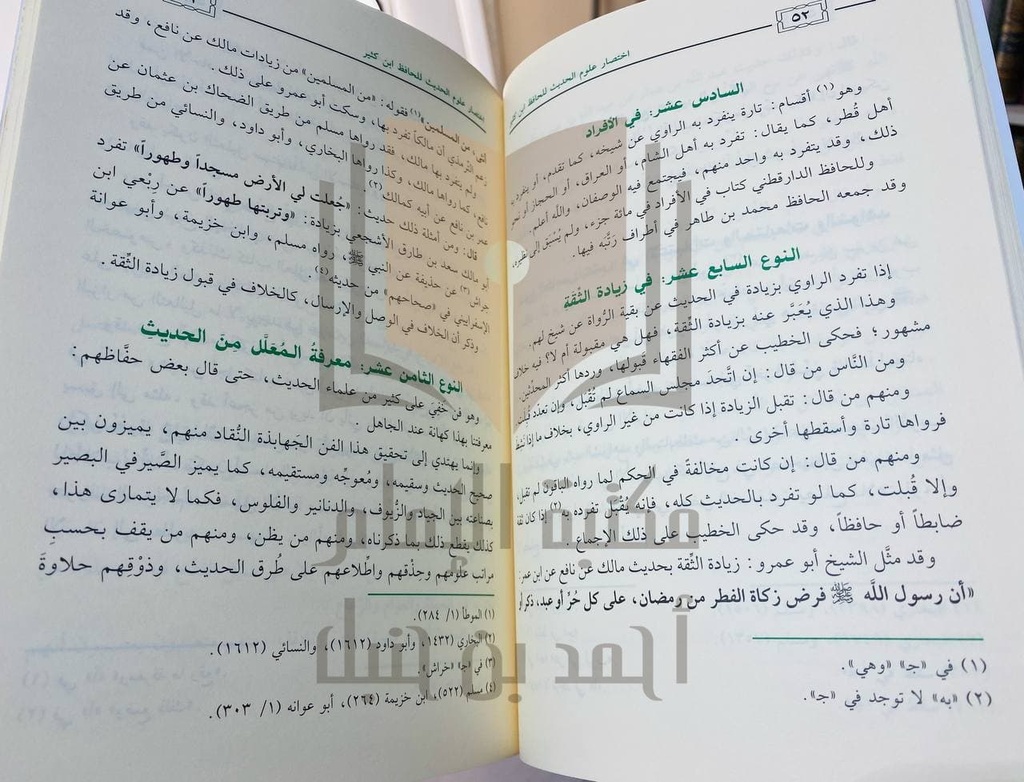 ٥٢
اختصار علوم الحديث للحافظ ابن كثير
السادس عشر: في الأفراد
وهو (١) أقسام: تارة ينفرد به الراوي عن شيخه، كما تقدم، أو ينفرد به
أهل قُطر، كما يقال: تفرد به أهل الشام، أو العراق، أو الحجاز أو نحو
ذلك، وقد يتفرد به واحد منهم، فيجتمع فيه الوصفان، والله أعلم.
وللحافظ الدارقطني كتاب في الأفراد في مائة جزء، ولم يُسْبَق إلى نظيره،
وقد جمعه الحافظ محمد بن طاهر في أطراف رتَّبه فيها.
النوع السابع عشر: في زيادة الثقة
إذا تفرد الراوي بزيادة في الحديث عن بقية الرُّواة عن شيخ لهم.
وهذا الذي يُعَبَّر عنه بزيادة الثِّقة، فهل هي مقبولة أم لا؟ فيه خلاف
مشهور؛ فحكى الخطيب عن أكثر الفقهاء قبولها، وردها أكثر المحدثين.
ومن النَّاس من قال: إن اتَّحدَ مجلس السماع لم تُقْبَل، وإن تعدد قُبلت.
ومنهم من قال: تقبل الزيادة إذا كانت من غير الراوي، بخلاف ما إذا نشط
فرواها تارة وأسقطها أخرى.
ومنهم من قال: إن كانت مخالفةً في الحكم لما رواه الباقون لم تقبل،
وإلا قُبلت، كما لو تفرد بالحديث كله، فإنه يُقْبَل تفرده به (٢) إذا كان ثقة
ضابطاً أو حافظاً، وقد حكى الخطيب على ذلك الإجماع.
وقد مثَّل الشيخ أبو عمرو: زيادة الثِّقة بحديث مالك عن نافع عن ابن عمر:
«أن رسول اللَّه ﷺ فرض زكاة الفطر من رمضان، على كل حُرٍّ أو عبد، ذكر أو
(١) في «جـ» «وهي».
(٢) «به» لا توجد في «جـ».
اختصار علوم الحديث للحافظ ابن كثير
أنثى، من المسلمين» (١) فقوله: «من المسلمين» من زيادات مالك عن نافع، وقد
زعم الترمذي أن مالكاً تفرد بها، وسكت أبو عمرو على ذلك.
ولم يتفرد بها مالك، فقد رواها مسلم من طريق الضحاك بن عثمان عن
نافع، كما رواها مالك، وكذا رواها البخاري، وأبو داود، والنسائي من طريق
عمر بن نافع عن أبيه كمالك (٢).
قال: ومن أمثلة ذلك حديث: «جُعلت لي الأرض مسجداً وطهوراً» تفرد
أبو مالك سعد بن طارق الأشجعي بزيادة: «وتربتها طهوراً» عن رِبْعي ابن
حراش (٣) عن حذيفة عن النبي ﷺ، رواه مسلم، وابن خزيمة، وأبو عوانة
الإسفراييني في «صحاحهم» من حديثه (٤).
وذكر أن الخلاف في الوصل والإرسال، كالخلاف في قبول زيادة الثِّقة.
النوع الثامن عشر: معرفةُ المُعَلَّل مِنَ الحديثِ
وهو فن خَفِيَ على كثير من علماء الحديث، حتى قال بعض حفَّاظهم:
معرفتنا بهذا كهانة عند الجاهل.
وإنما يهتدي إلى تحقيق هذا الفن الجَهابذة النُّقاد منهم، يميزون بين
صحيح الحديث وسقيمه، ومُعوجِّه ومستقيمه، كما يميز الصَّيرفي البصير
بصناعته بين الجياد والزُّيوف، والدنانير والفلوس، فكما لا يتمارى هذا،
كذلك يقطع ذلك بما ذكرناه، ومنهم من يظن، ومنهم من يقف بحسب
مراتب علومهم وحِذْقهم واطِّلاعهم على طُرق الحديث، وذَوْقِهم حلاوةَ
(١) الموطأ (١/ ٢٨٤).
(٢) البخاري (١٤٣٢)، وأبو داود (١٦١٢)، والنسائي (١٦١٢).
(٣) في «جـ» «خراش».
(٤) مسلم (٥٢٢)، ابن خزيمة (٢٦٤)، أبو عوانه (١/ ٣٠٣).
مكتبة الإمام
أحمد بن حنبل